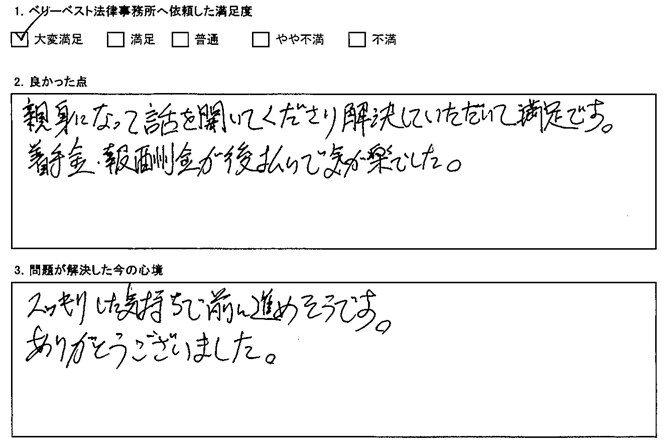 1. ベリーベスト法律事務所へ依頼した満足度
☑ 大変満足 □ 満足 □ 普通 □ やや不満 □ 不満
2. 良かった点
親身になって話を聞いてくださり解決していただいて満足です。
着手金・報酬金が後払いで気が楽でした。
3. 問題が解決した今の心境
スッキリした気持ちで前に進めそうです。
ありがとうございました。